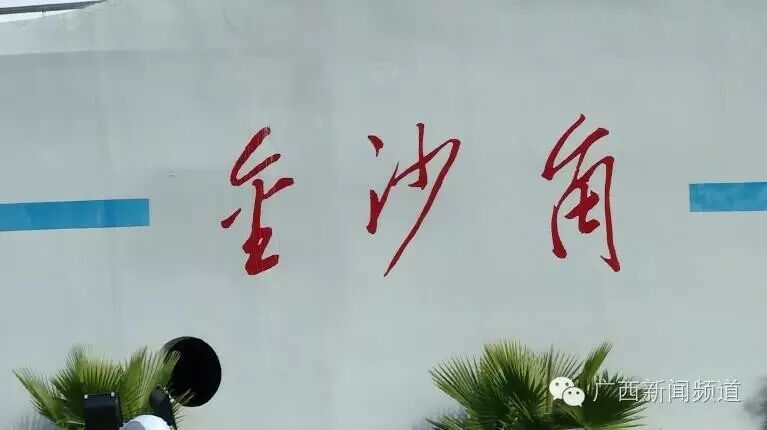 金沙角
广西新闻频道